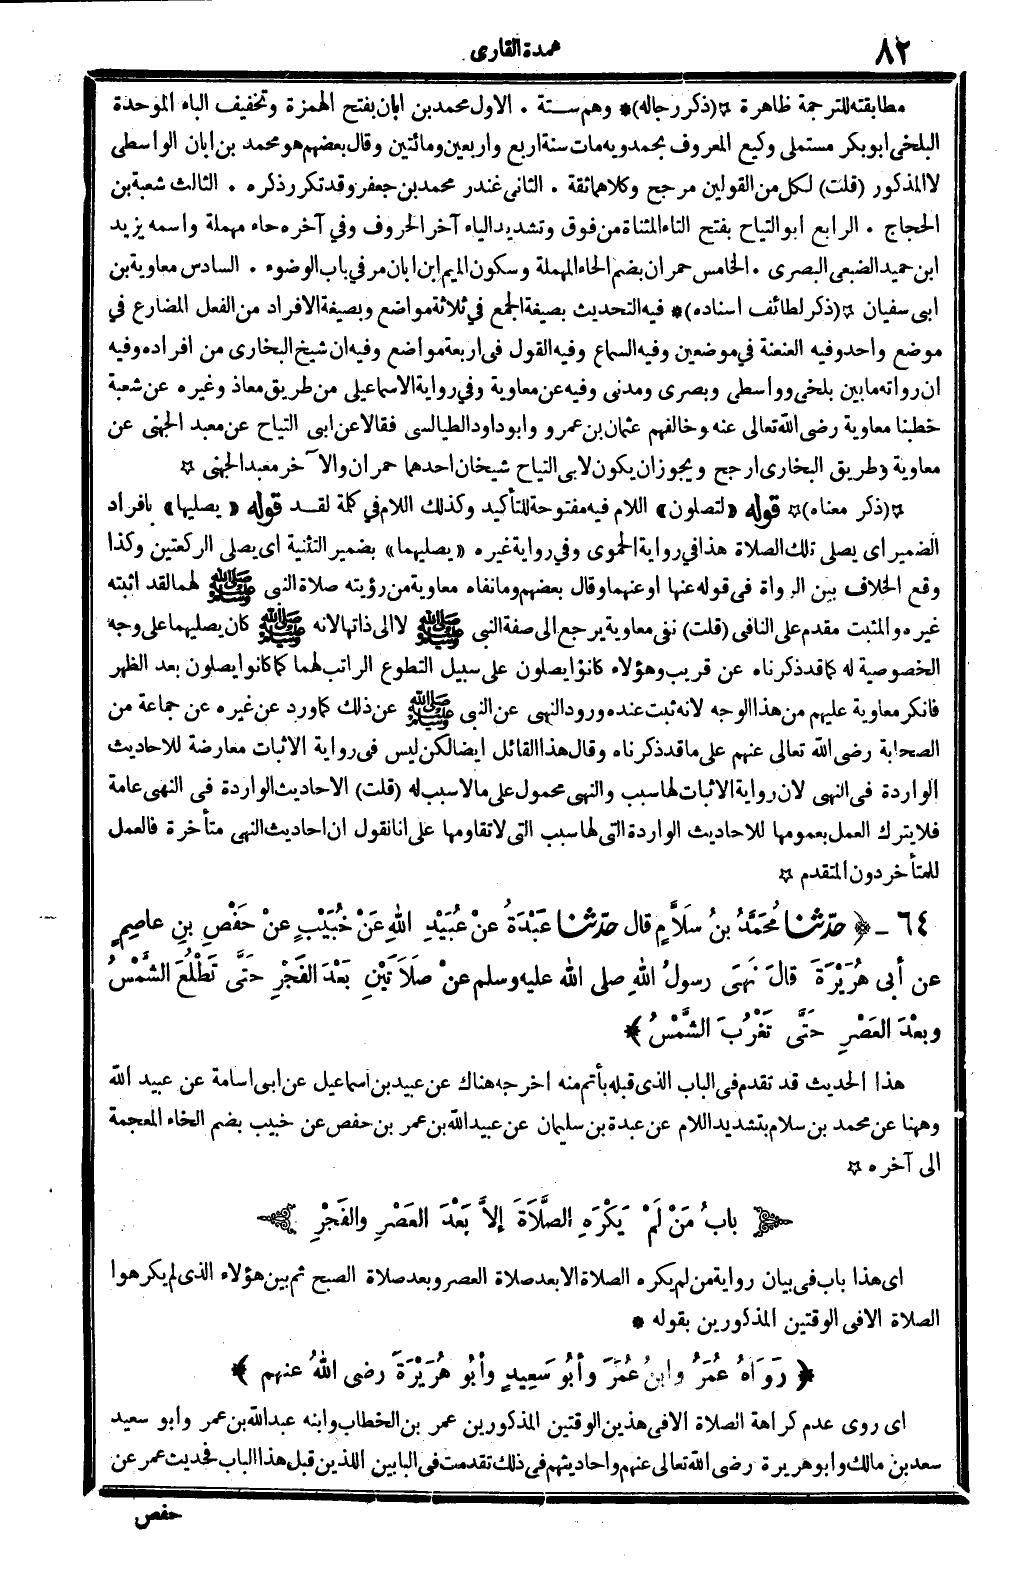 ٨٢
عمدة القارى
مطابقته للترجمة ظاهرة ☆ (ذكر رجاله) * وهم ستة . الاول محمد بن ابان بفتح الهمزة وتخفيف الباء الموحدة
البلخى ابو بكر مستملى وكيع المعروف بحمدويه مات سنة اربع واربعين ومائتين وقال بعضهم هو محمد بن ابان الواسطى
لا المذكور (قلت) لكل من القولين مرجح وكلاهما ثقة . الثانى غندر محمد بن جعفر وقد تكرر ذكره . الثالث شعبة بن
الحجاج . الرابع ابو التياح بفتح التاء المثناة من فوق وتشديد الياء آخر الحروف وفي آخره حاء مهملة واسمه يزيد
ابن حميد الضبعى البصرى . الخامس حمران بضم الحاء المهملة وسكون الميم ابن ابان مر في باب الوضوء . السادس معاوية بن
ابى سفيان ☆ (ذكر لطائف اسناده) * فيه التحديث بصيغة الجمع في ثلاثة مواضع وبصيغة الافراد من الفعل المضارع في
موضع واحد وفيه العنعنة في موضعين وفيه السماع وفيه القول فى اربعة مواضع وفيه ان شيخ البخارى من افراده وفيه
ان رواته ما بين بلخى وواسطى وبصرى ومدنى وفيه عن معاوية وفي رواية الاسماعيلى من طريق معاذ وغيره عن شعبة
خطبنا معاوية رضى الله تعالى عنه وخالفهم عثمان بن عمرو وابو داود الطيالسى فقالا عن ابى التياح عن معبد الجهنى عن
معاوية وطريق البخارى ارجح ويجوز ان يكون لابى التياح شيخان احدهما حمران والآخر معبد الجهنى ☆
☆ (ذكر معناه) ☆ قوله «لتصلون» اللام فيه مفتوحة للتأكيد وكذلك اللام في كلمة لقد قوله «يصليها» بافراد
الضمير اى يصلى تلك الصلاة هذا في رواية الحموى وفي رواية غيره «يصليهما» بضمير التثنية اى يصلى الركعتين وكذا
وقع الخلاف بين الرواة فى قوله عنها او عنهما وقال بعضهم وما نفاه معاوية من رؤيته صلاة النبى ﷺ لهما لقد اثبته
غيره والمثبت مقدم على النافى (قلت) نفى معاوية يرجع الى صفة النبى ﷺ لا الى ذاتها لانه ﷺ كان يصليهما على وجه
الخصوصية له كما قد ذكرناه عن قريب وهؤلاء كانوا يصلون على سبيل التطوع الراتب لهما كما كانوا يصلون بعد الظهر
فانكر معاوية عليهم من هذا الوجه لانه ثبت عنده ورود النهى عن النبى ﷺ عن ذلك كما ورد عن غيره عن جماعة من
الصحابة رضى الله تعالى عنهم على ما قد ذكرناه وقال هذا القائل ايضا لكن ليس فى رواية الاثبات معارضة للاحاديث
الواردة فى النهى لان رواية الاثبات لها سبب والنهى محمول على ما لا سبب له (قلت) الاحاديث الواردة فى النهى عامة
فلا يترك العمل بعمومها للاحاديث الواردة التى لها سبب التى لا تقاومها على انا نقول ان احاديث النهى متأخرة فالعمل
للمتأخر دون المتقدم ☆
٦٤ ـ ﴿ حدّثنا مُحَمَّدُ بنُ سَلَامٍ قال حدّثنا عَبْدَةُ عنْ عُبَيْدِ اللهِ عَنْ خُبَيْبٍ عنْ حَفْصِ بنِ عاصِمٍ
عن أبى هُرَيْرَةَ قالَ نَهَى رسولُ اللهِ صلى الله عليه وسلم عنْ صَلَاَتَيْنِ بَعْدَ الفَجْرِ حَتَّى تَطْلُعَ الشَّمْسُ
وبعْدَ العَصْرِ حَتَّى تَغْرُبَ الشَّمْسُ ﴾
هذا الحديث قد تقدم فى الباب الذى قبله بأتم منه اخرجه هناك عن عبيد بن اسماعيل عن ابى اسامة عن عبيد الله
وههنا عن محمد بن سلام بتشديد اللام عن عبدة بن سليمان عن عبيد الله بن عمر بن حفص عن خبيب بضم الخاء المعجمة
الى آخره ☆
باب مَنْ لَمْ يَكْرَهِ الصَّلَاةَ إلاَّ بَعْدَ العَصْرِ والفَجْرِ
اى هذا باب فى بيان رواية من لم يكره الصلاة الا بعد صلاة العصر وبعد صلاة الصبح ثم بين هؤلاء الذى لم يكرهوا
الصلاة الا فى الوقتين المذكورين بقوله *
﴿ رَوَاهُ عُمَرُ وابنُ عُمَرَ وأبُو سَعِيدٍ وأبُو هُرَيْرَةَ رضى اللهُ عنهم ﴾
اى روى عدم كراهة الصلاة الا فى هذين الوقتين المذكورين عمر بن الخطاب وابنه عبد الله بن عمر وابو سعيد
سعد بن مالك وابو هريرة رضى الله تعالى عنهم واحاديثهم فى ذلك تقدمت فى البابين اللذين قبل هذا الباب فحديث عمر عن
حفص